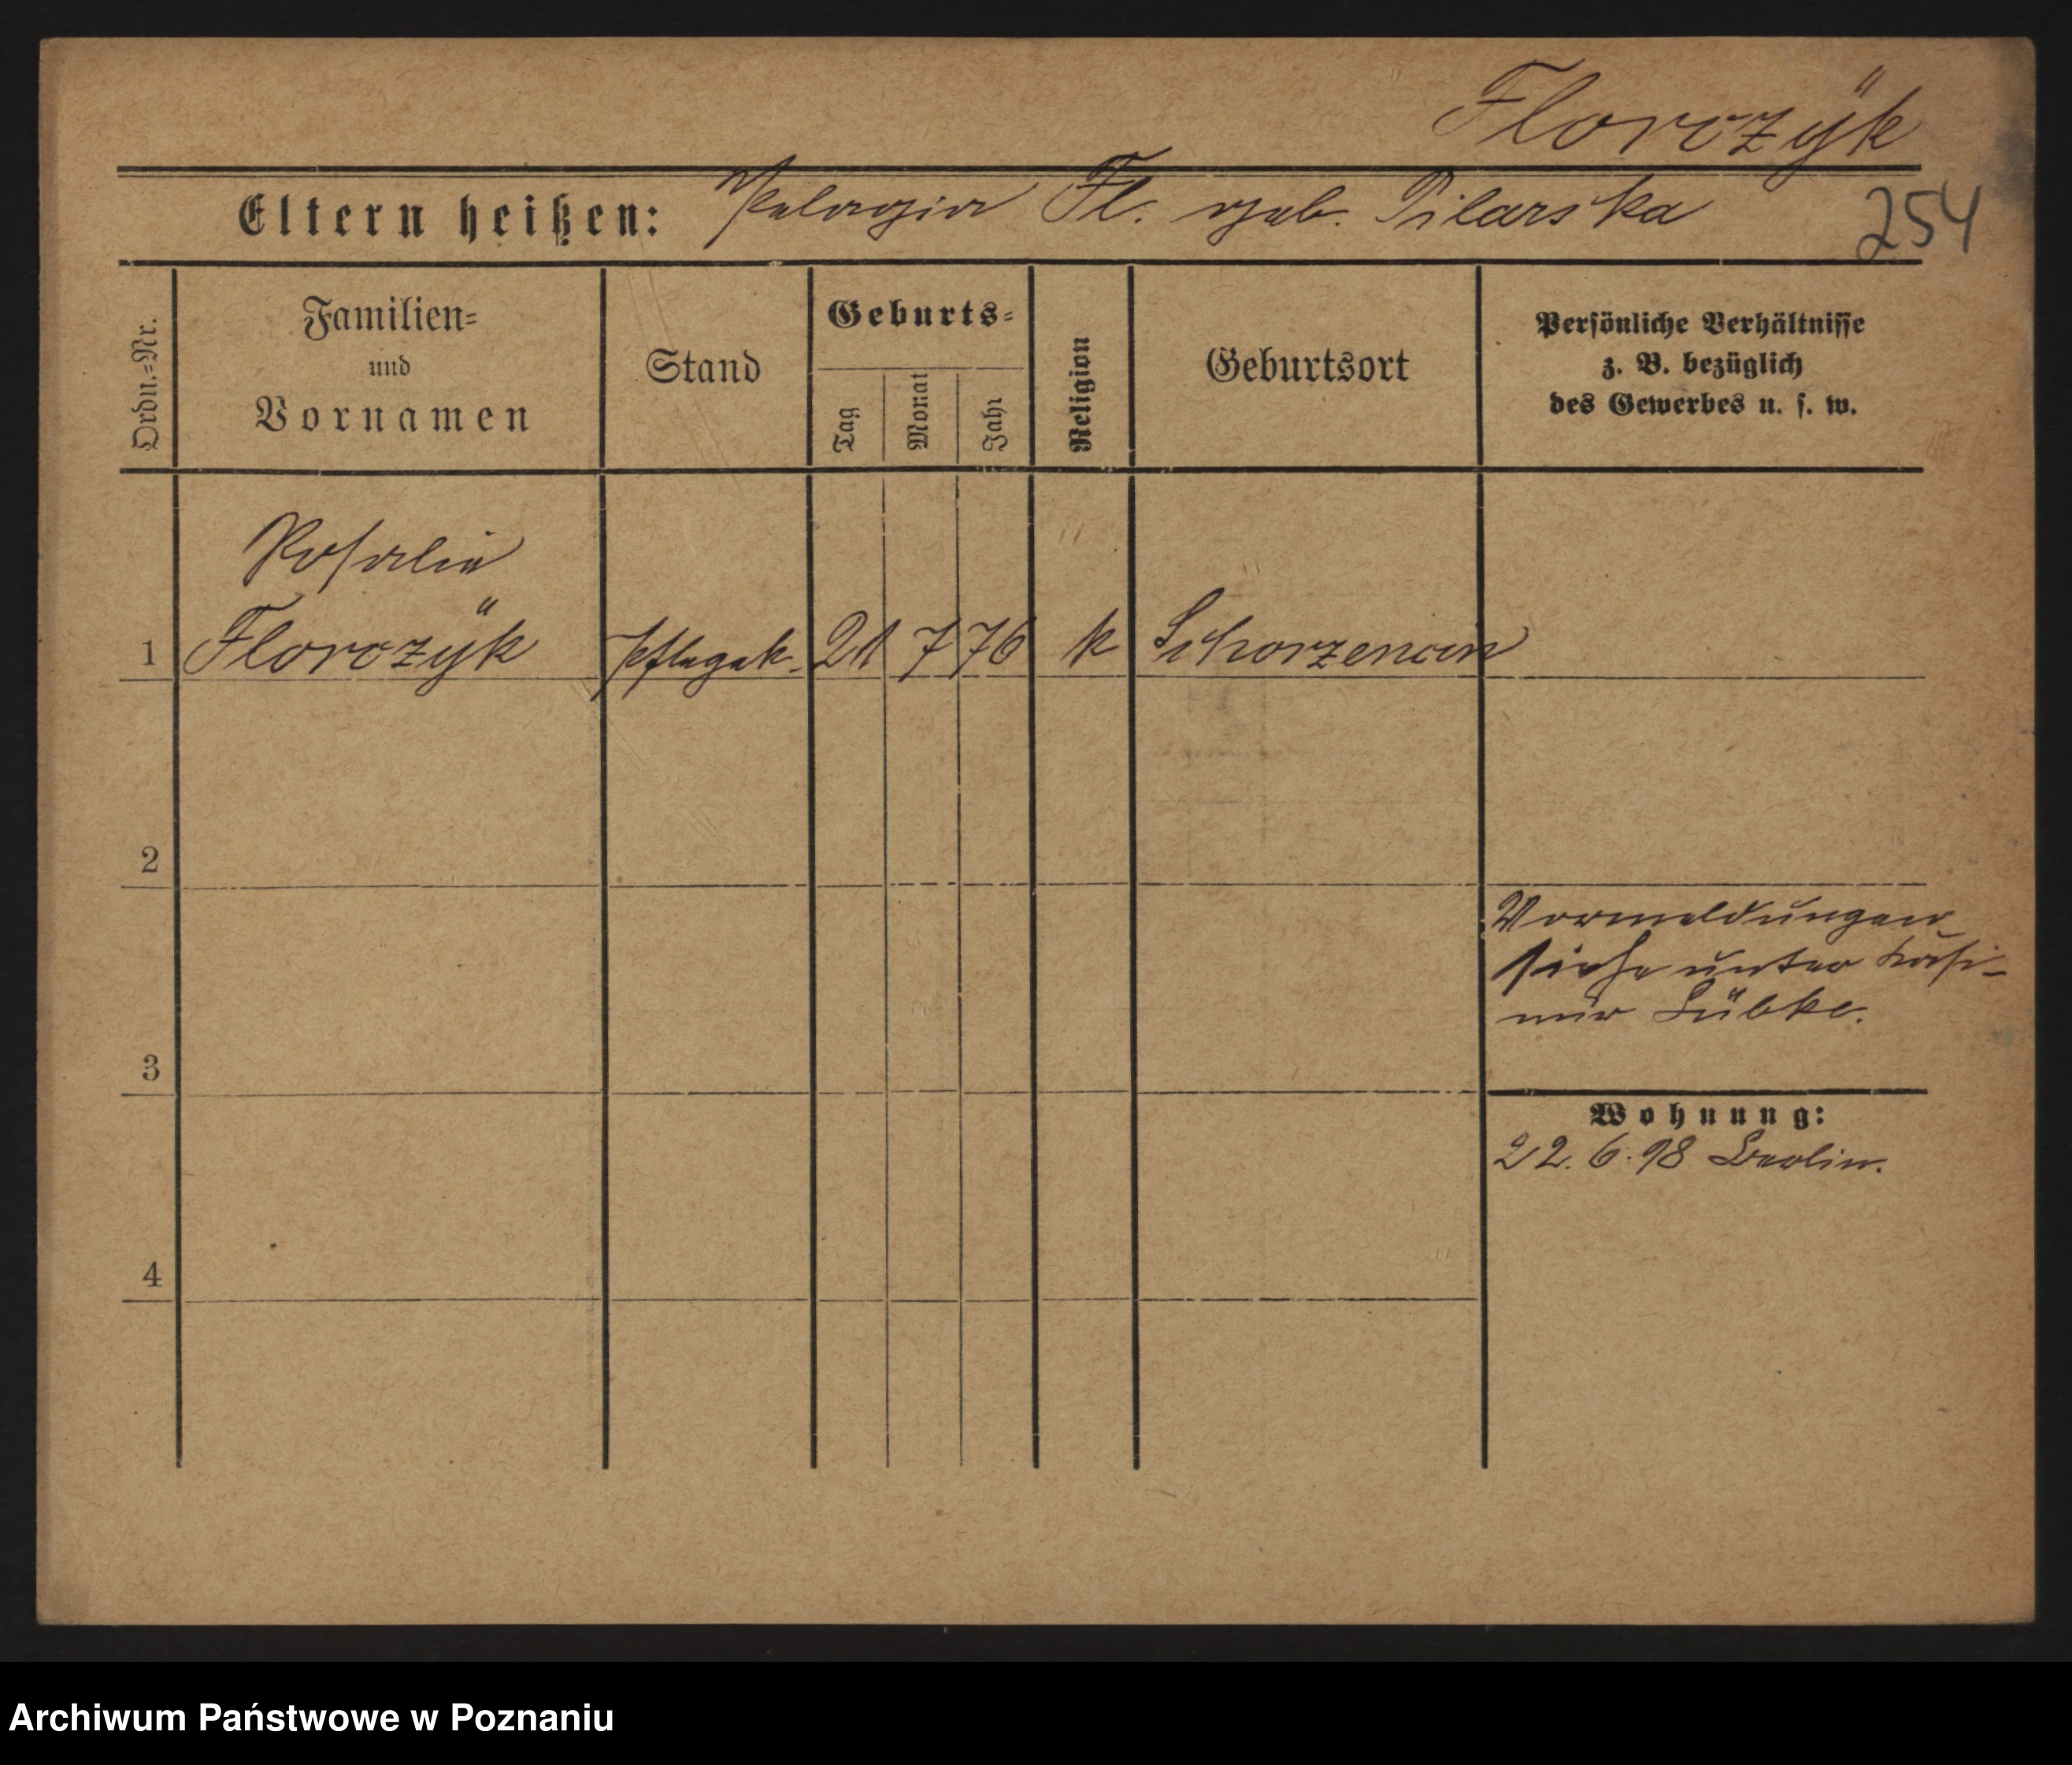 Florczÿk
Eltern heißen: Pelagia Fl. geb. Pilarska
254
Ordn.=Nr.
Familien=
und
Vornamen
Stand
Geburts=
Tag
Monat
Jahr
Religion
Geburtsort
Persönliche Verhältnisse
z. B. bezüglich
des Gewerbes u. s. w.
Rosalia
1 Florczÿk Pflegek. 21 7 76 k Schorzencin
2
Vormeldungen
siehe unter Kasi-
mir Lübke.
3
Wohnung:
22. 6. 98 Berlin.
4
Archiwum Państwowe w Poznaniu